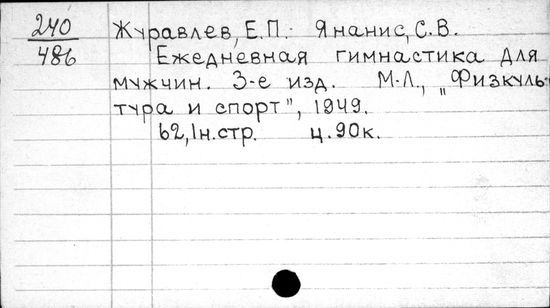 240
486
Журавлев, Е.П. Янанис, С.В.
Ежедневная гимнастика для
мужчин. 3-е изд. М-Л., „Физкуль-
тура и спорт", 1949.
62, 1н.стр. ц. 90к.